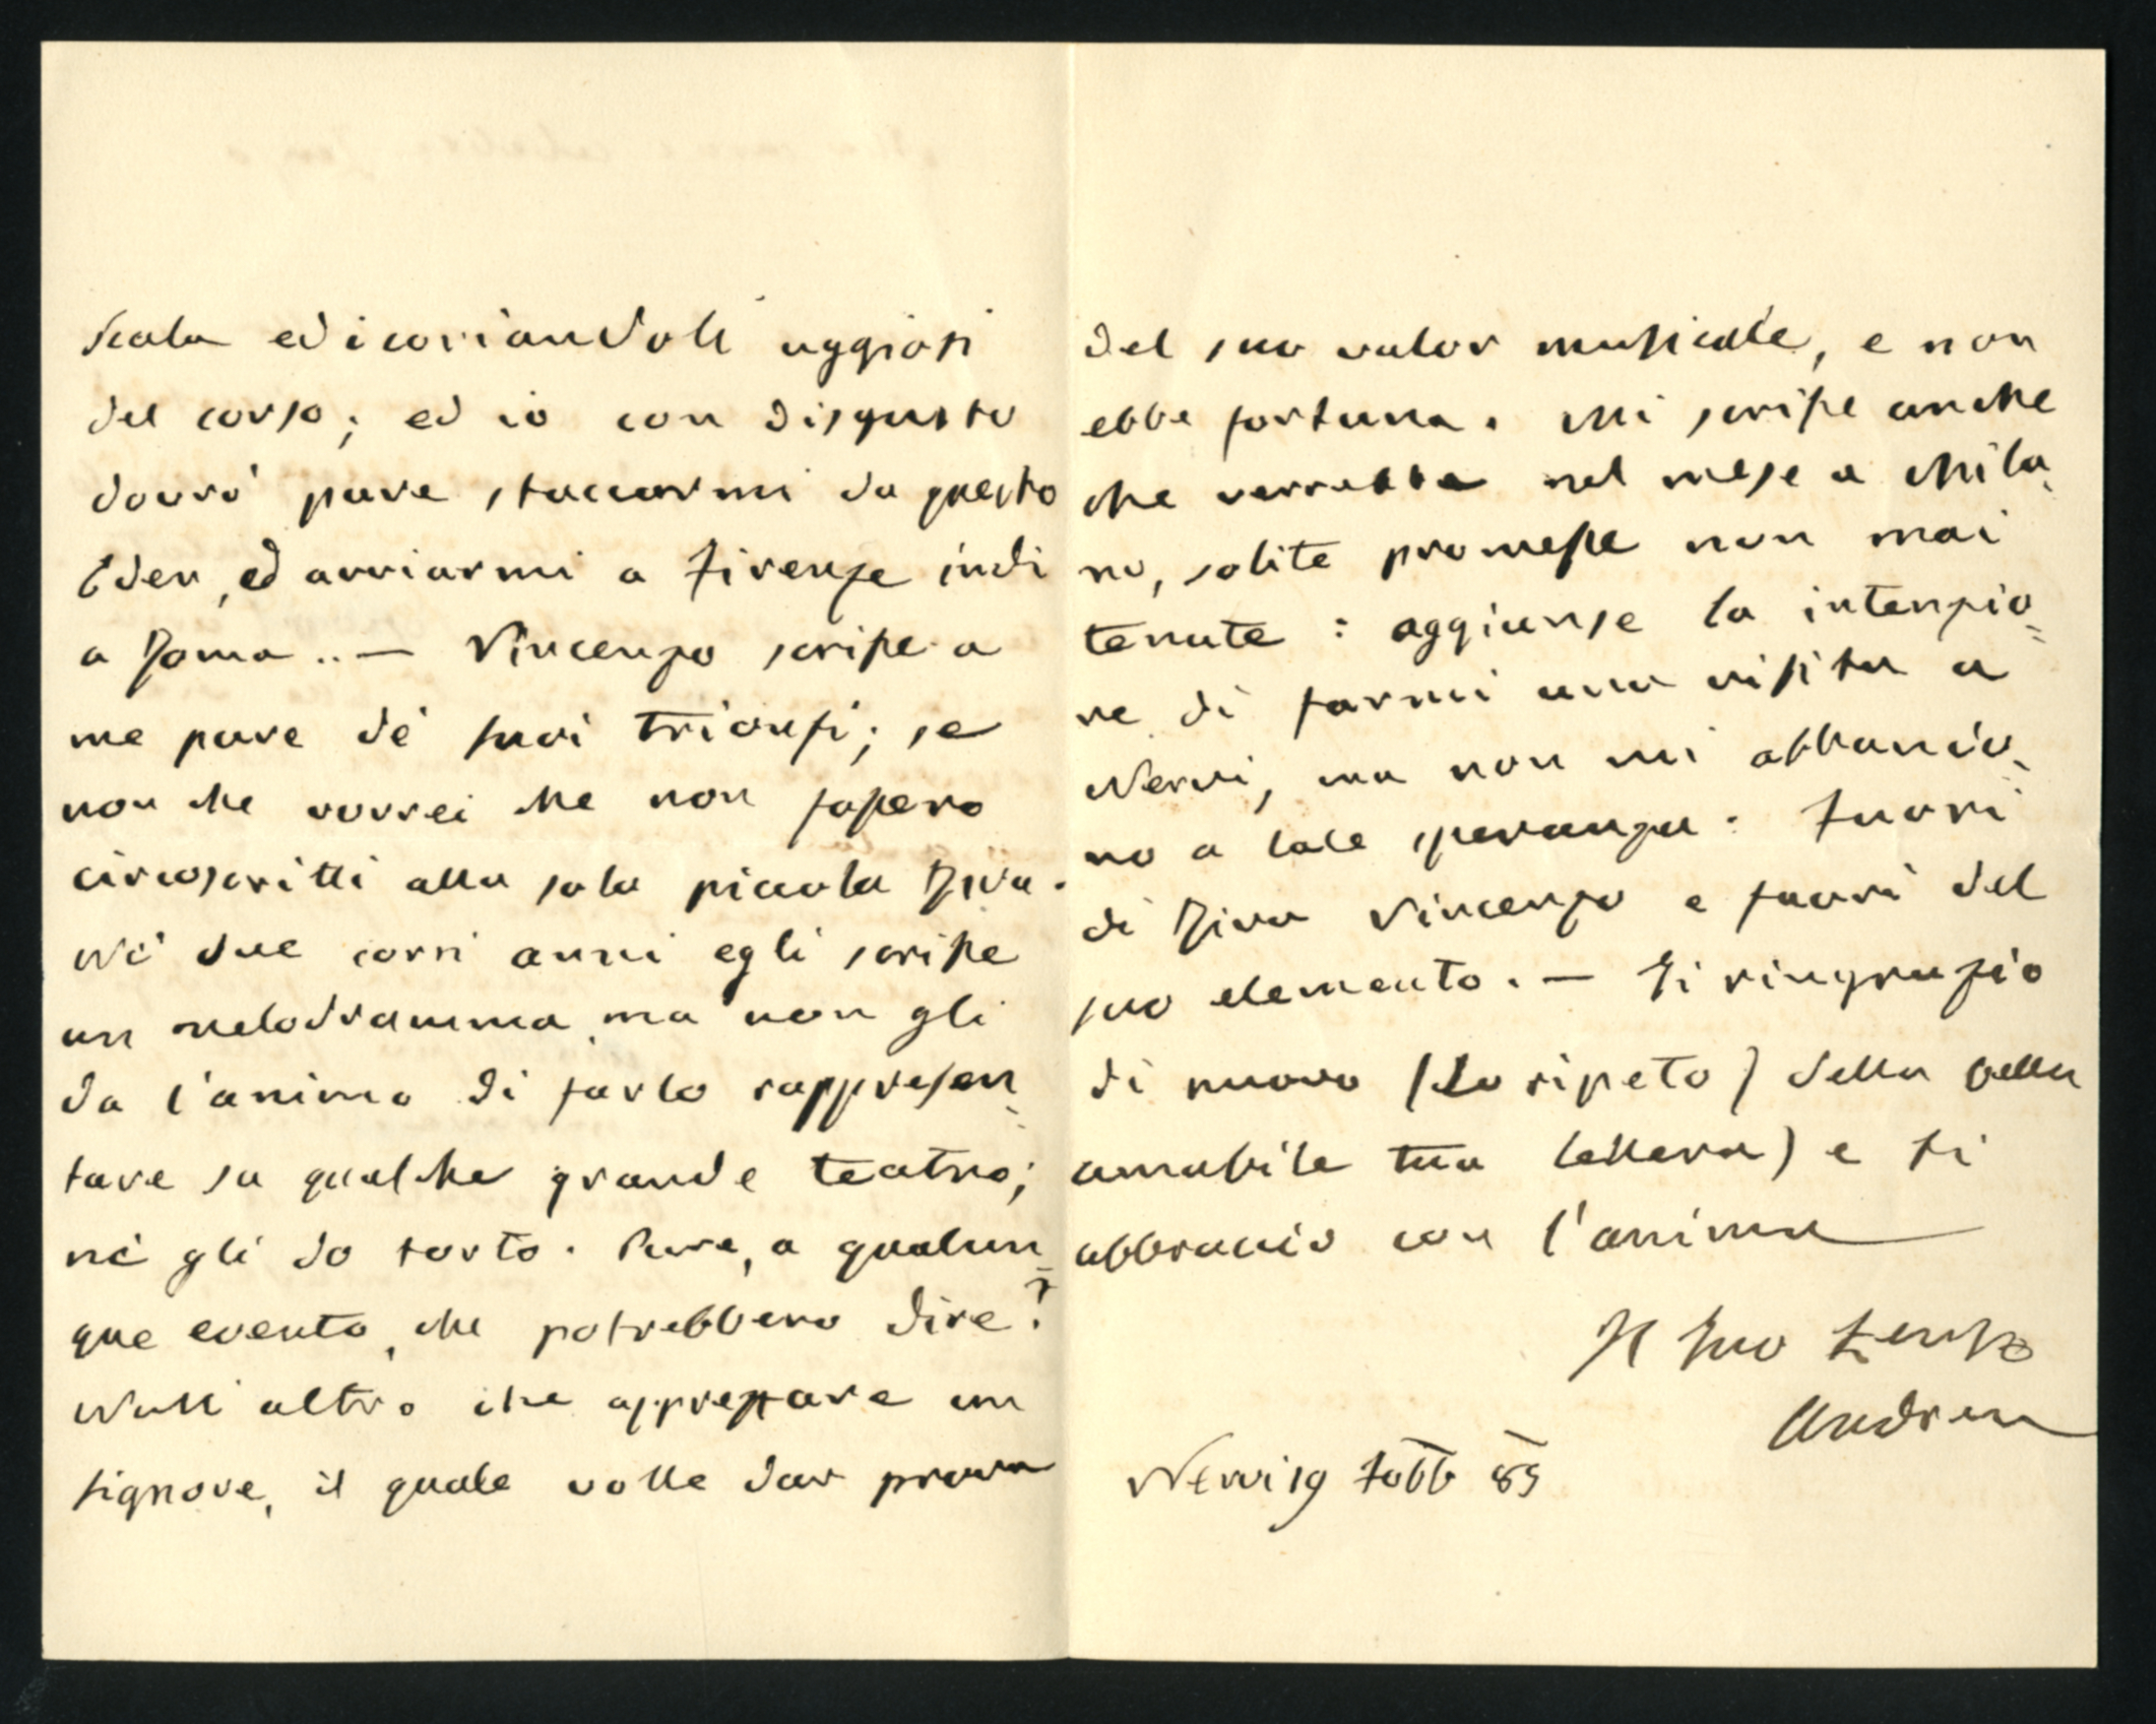 Scala ed i coriandoli uggiosi
del corso; ed io con disgusto
dovrò pure staccarmi da questo
Eden, ed avviarmi a Firenze indi
a Roma .. — Vincenzo scrisse a
me pure de' suoi trionfi; se
non che vorrei che non fossero
circoscritti alla sola piccola Riva.
Ne' due corsi anni egli scrisse
un melodramma ma non gli
da l'animo di farlo rappresen-
tare su qualche grande teatro;
nè gli do torto. Pure, a qualun=
que evento, che potrebbero dire?
Null'altro che apprezzare un
signore, il quale volle dar prova
del suo valor musicale, e non
ebbe fortuna. Mi scrisse anche
che verrebbe nel mese a Mila-
no, solite promesse non mai
tenute: aggiunse la intenzio=
ne di farmi una visita a
Nervi, ma non mi abbando-
no a tale speranza. Fuori
di Riva Vincenzo e fuori del
suo elemento. — Ti ringrazio
di nuovo (lo ripeto) della bella
amabile tua lettera) e ti
abbraccio con l'anima
Il tuo
Andrea
Nervi 19 Febb 89